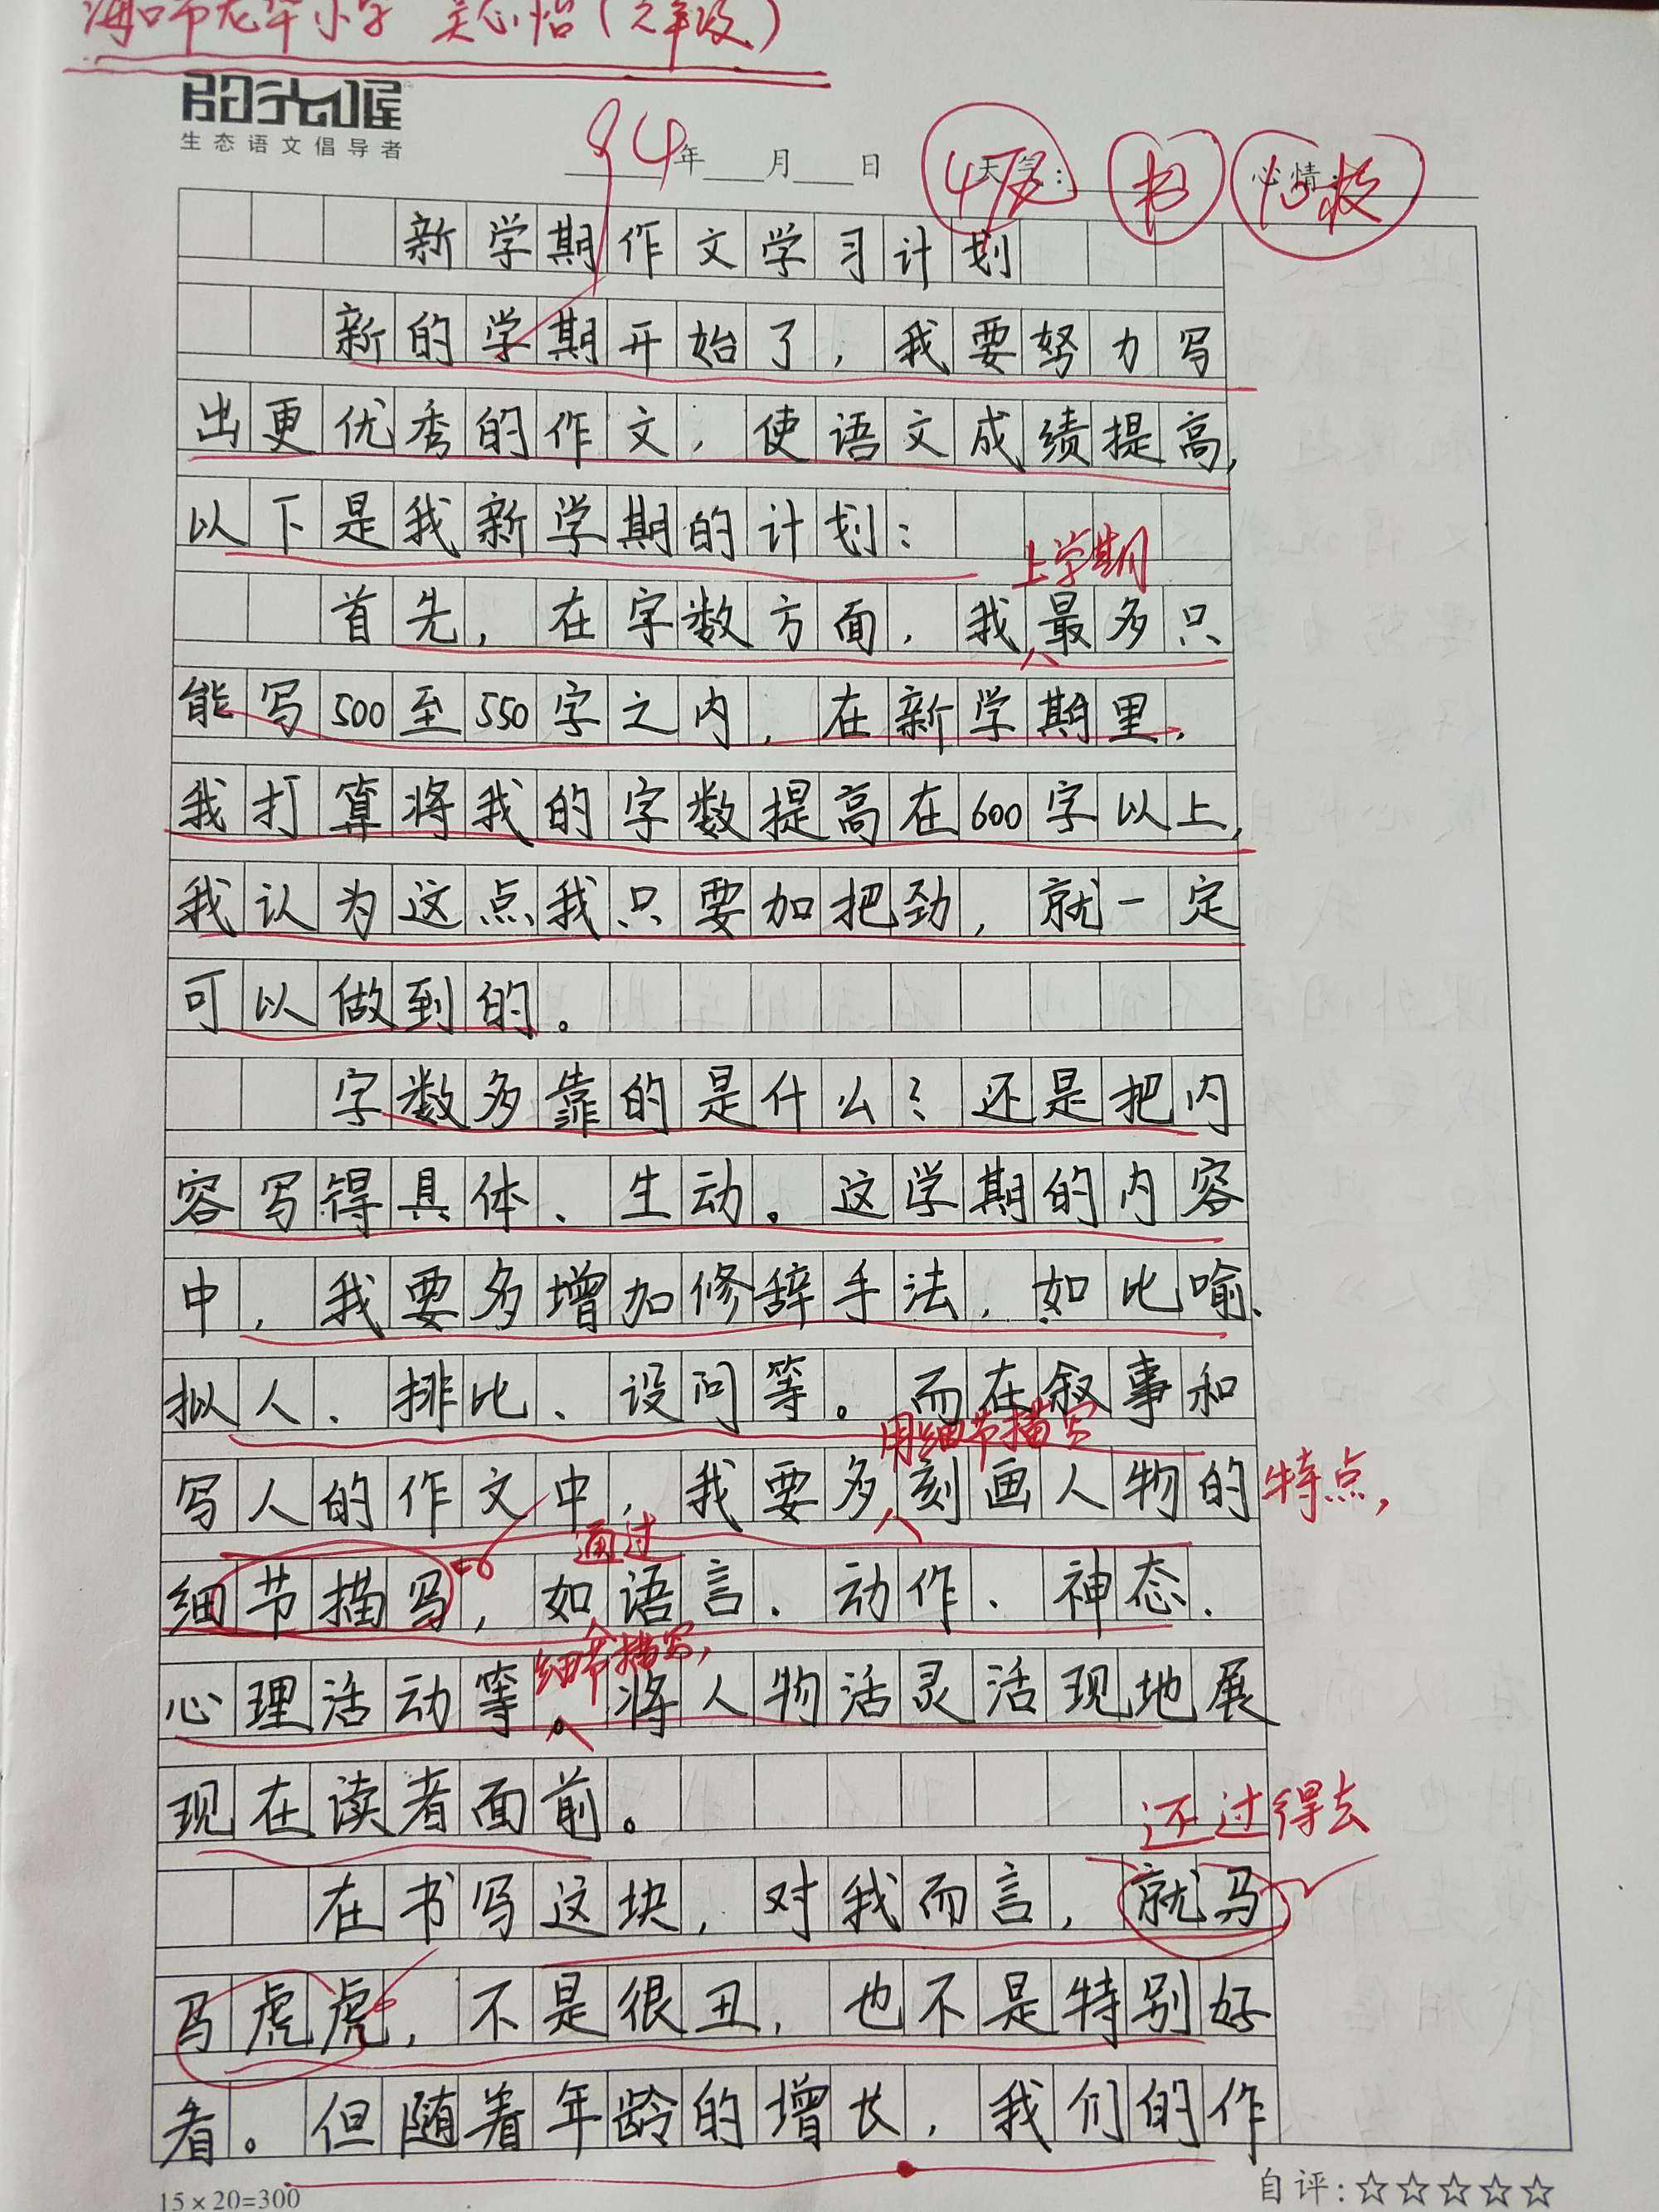 海口市龙华小学 吴心怡(六年级)
阳光喔
生态语文倡导者
94
年 月 日 天气: 心情:
新学期作文学习计划
新的学期开始了,我要努力写
出更优秀的作文,使语文成绩提高,
以下是我新学期的计划:
上学期
首先,在字数方面,我最多只
能写500至550字之内,在新学期里,
我打算将我的字数提高在600字以上,
我认为这点我只要加把劲,就一定
可以做到的。
字数多靠的是什么?还是把内
容写得具体、生动。这学期的内容
中,我要多增加修辞手法,如比喻、
拟人、排比、设问等。而在叙事和
用细节描写
写人的作文中,我要多刻画人物的特点,
通过
细节描写,如语言、动作、神态、
细节描写,
心理活动等。将人物活灵活现地展
现在读者面前。
还过得去
在书写这块,对我而言,就马
马虎虎,不是很丑,也不是特别好
看。但随着年龄的增长,我们的作
15×20=300
自评:☆☆☆☆☆